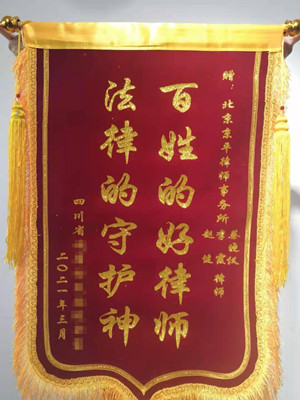 赠：北京京平律师事务所
李霞 律师
赵健
百姓的好律师
法律的守护神
四川省
二〇二一年三月